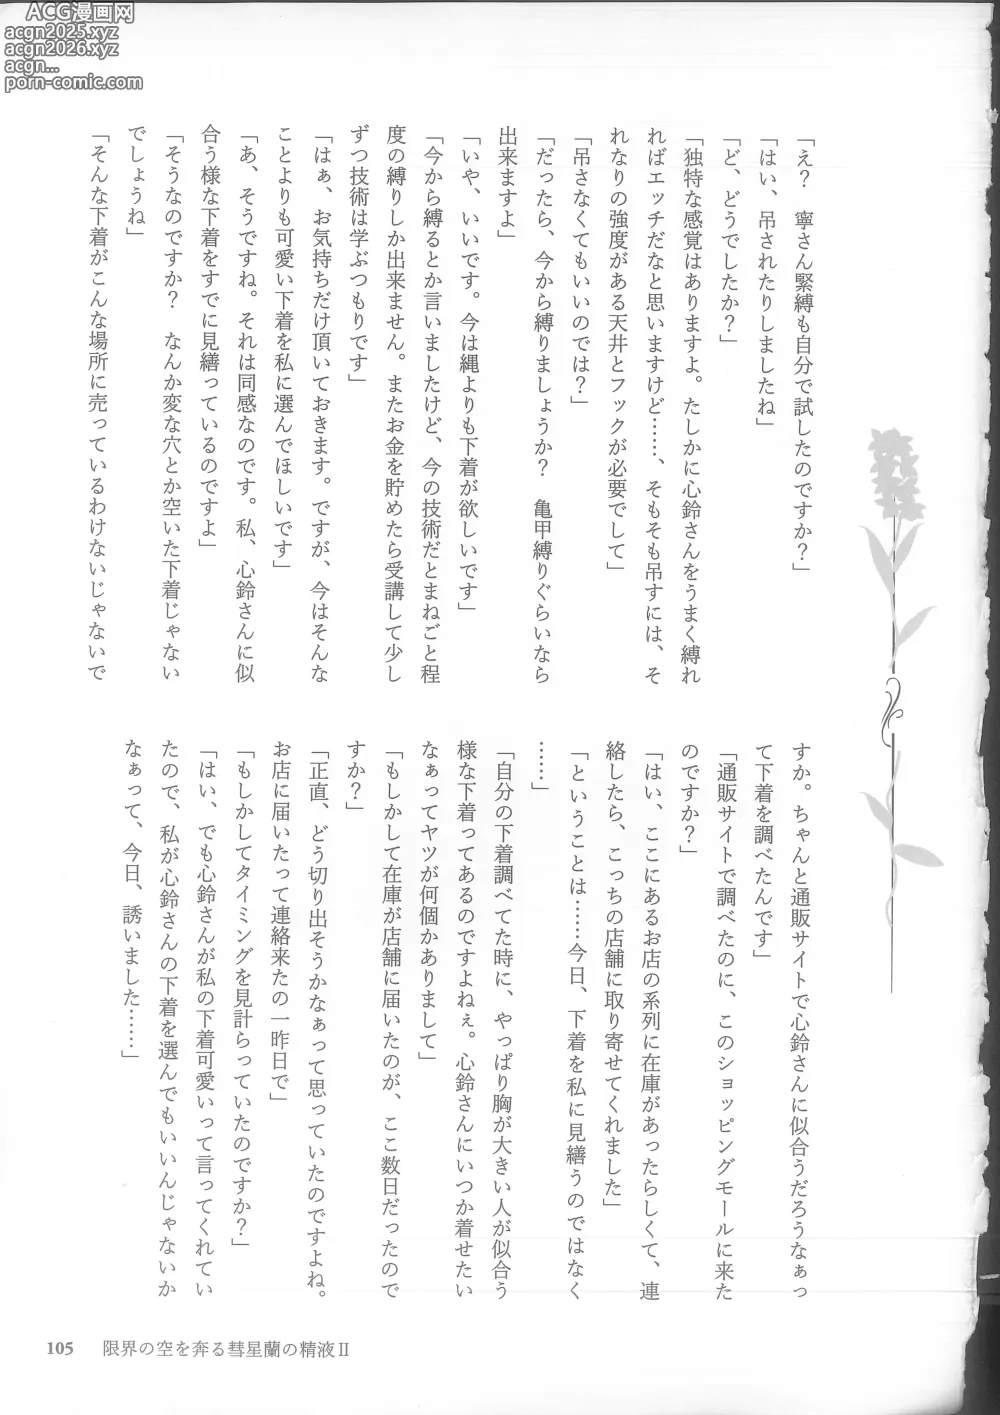 ACG漫画网
acgn2025.xyz
acgn2026.xyz
acgn...
porn-comic.com
「え？　寧さん緊縛も自分で試したのですか？」
「はい、吊されたりしましたね」
「ど、どうでしたか？」
「独特な感覚はありますよ。たしかに心鈴さんをうまく縛れ
ればエッチだなと思いますけど……、そもそも吊すには、そ
れなりの強度がある天井とフックが必要でして」
「吊さなくてもいいのでは？」
「だったら、今から縛りましょうか？　亀甲縛りぐらいなら
出来ますよ」
「いや、いいです。今は縄よりも下着が欲しいです」
「今から縛るとか言いましたけど、今の技術だとまねごと程
度の縛りしか出来ません。またお金を貯めたら受講して少し
ずつ技術は学ぶつもりです」
「はぁ、お気持ちだけ頂いておきます。ですが、今はそんな
ことよりも可愛い下着を私に選んでほしいです」
「あ、そうですね。それは同感なのです。私、心鈴さんに似
合う様な下着をすでに見繕っているのですよ」
「そうなのですか？　なんか変な穴とか空いた下着じゃない
でしょうね」
「そんな下着がこんな場所に売っているわけないじゃないで
すか。ちゃんと通販サイトで心鈴さんに似合うだろうなぁっ
て下着を調べたんです」
「通販サイトで調べたのに、このショッピングモールに来た
のですか？」
「はい、ここにあるお店の系列に在庫があったらしくて、連
絡したら、こっちの店舗に取り寄せてくれました」
「ということは……今日、下着を私に見繕うのではなく
……」
「自分の下着調べてた時に、やっぱり胸が大きい人が似合う
様な下着ってあるのですよねぇ。心鈴さんにいつか着せたい
なぁってヤツが何個かありまして」
「もしかして在庫が店舗に届いたのが、ここ数日だったので
すか？」
「正直、どう切り出そうかなぁって思っていたのですよね。
お店に届いたって連絡来たの一昨日で」
「もしかしてタイミングを見計らっていたのですか？」
「はい、でも心鈴さんが私の下着可愛いって言ってくれてい
たので、私が心鈴さんの下着を選んでもいいんじゃないか
なぁって、今日、誘いました……」
105　限界の空を奔る彗星蘭の精液Ⅱ